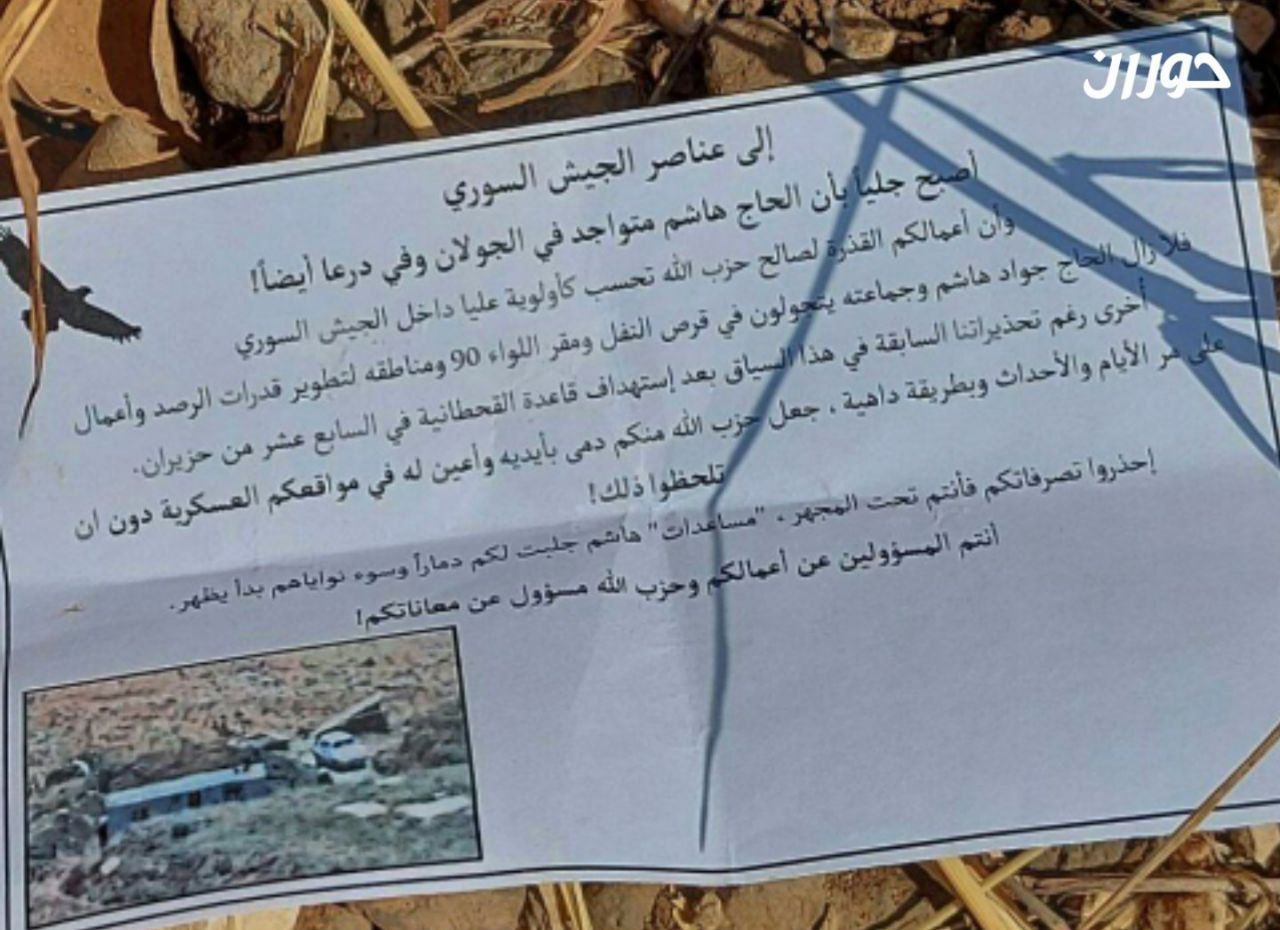 حوران
إلى عناصر الجيش السوري
أصبح جلياً بأن الحاج هاشم متواجد في الجولان وفي درعا أيضاً!
وأن أعمالكم القذرة لصالح حزب الله تحسب كأولوية عليا داخل الجيش السوري
فلا زال الحاج جواد هاشم وجماعته يتجولون في قرص النفل ومقر اللواء 90 ومناطقه لتطوير قدرات الرصد وأعمال
أخرى رغم تحذيراتنا السابقة في هذا السياق بعد إستهداف قاعدة القحطانية في السابع عشر من حزيران.
على مر الأيام والأحداث وبطريقة داهية ، جعل حزب الله منكم دمى بأيديه وأعين له في مواقعكم العسكرية دون ان
تلحظوا ذلك!
إحذروا تصرفاتكم فأنتم تحت المجهر ، "مساعدات" هاشم جلبت لكم دماراً وسوء نواياهم بدأ يظهر.
أنتم المسؤولين عن أعمالكم وحزب الله مسؤول عن معاناتكم!